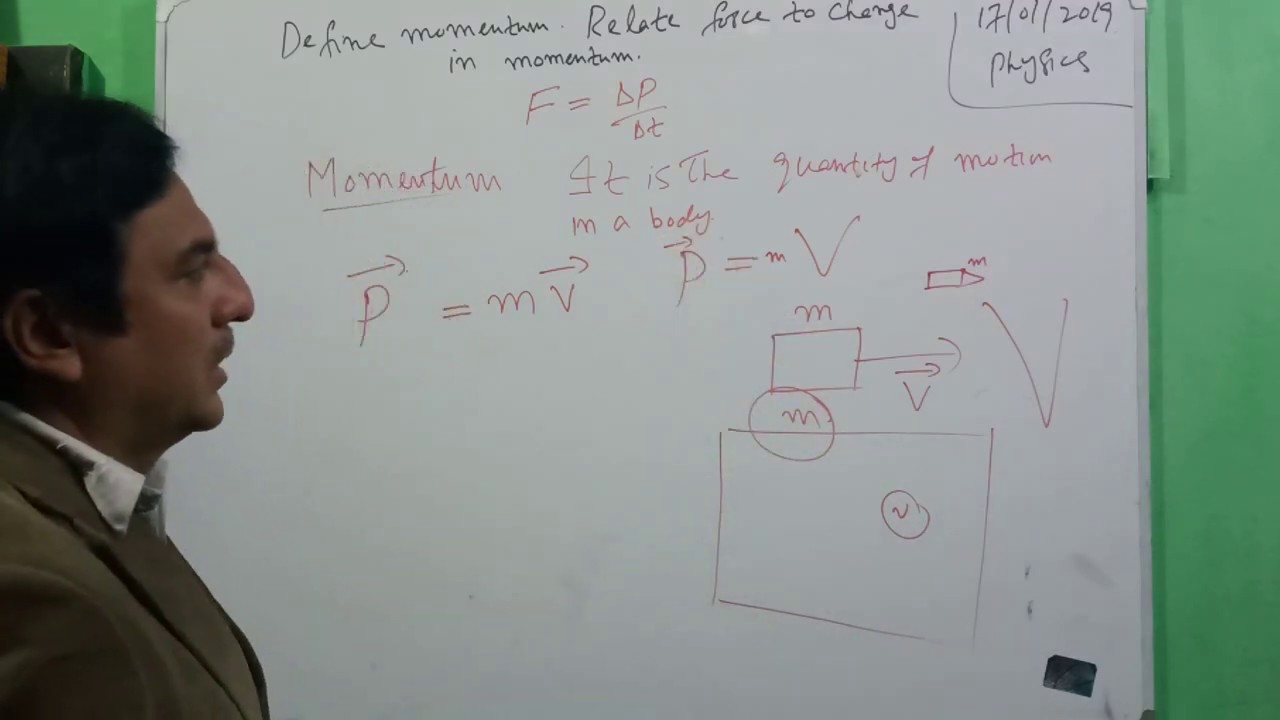 Define momentum. Relate force to change
in momentum.
17/01/2019
Physics
F = ΔP/Δt
Momentum It is The quantity of motion
in a body.
P⃗ = m V⃗
P⃗ = m V
m
m
V⃗
V
m
v